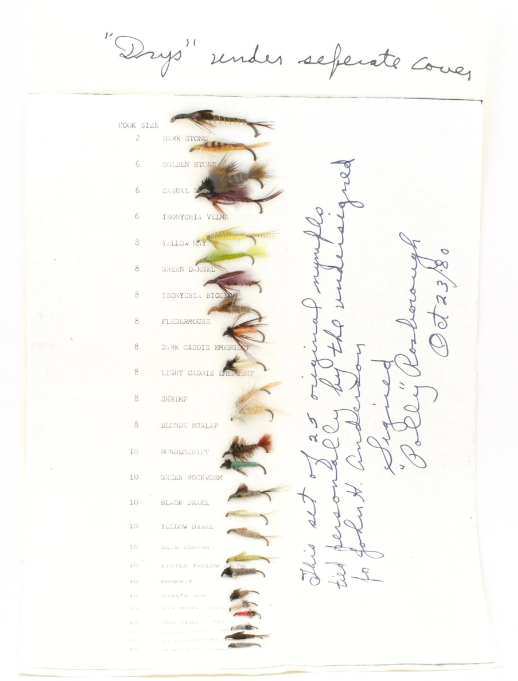 "Drys" under seperate cover
HOOK SIZE
2 DARK STONE
6 GOLDEN STONE
6 CASUAL
6 ISONYCHIA VELMA
8 YELLOW MAY
8 GREEN DAMSEL
8 ISONYCHIA
8 FLEDERMOUSE
8 DARK CADDIS EMERGENT
8 LIGHT CADDIS EMERGENT
8 SHRIMP
8 BLONDE BURLAP
10 NONDESCRIPT
10 GREEN ROCKWORM
10 BLACK DRAKE
10 YELLOW DRAKE
10
10
This set of 25 original nymphs
tied personally by the undersigned
for John H. Anderson
Signed
"Polly" Rosborough
Oct 23/80